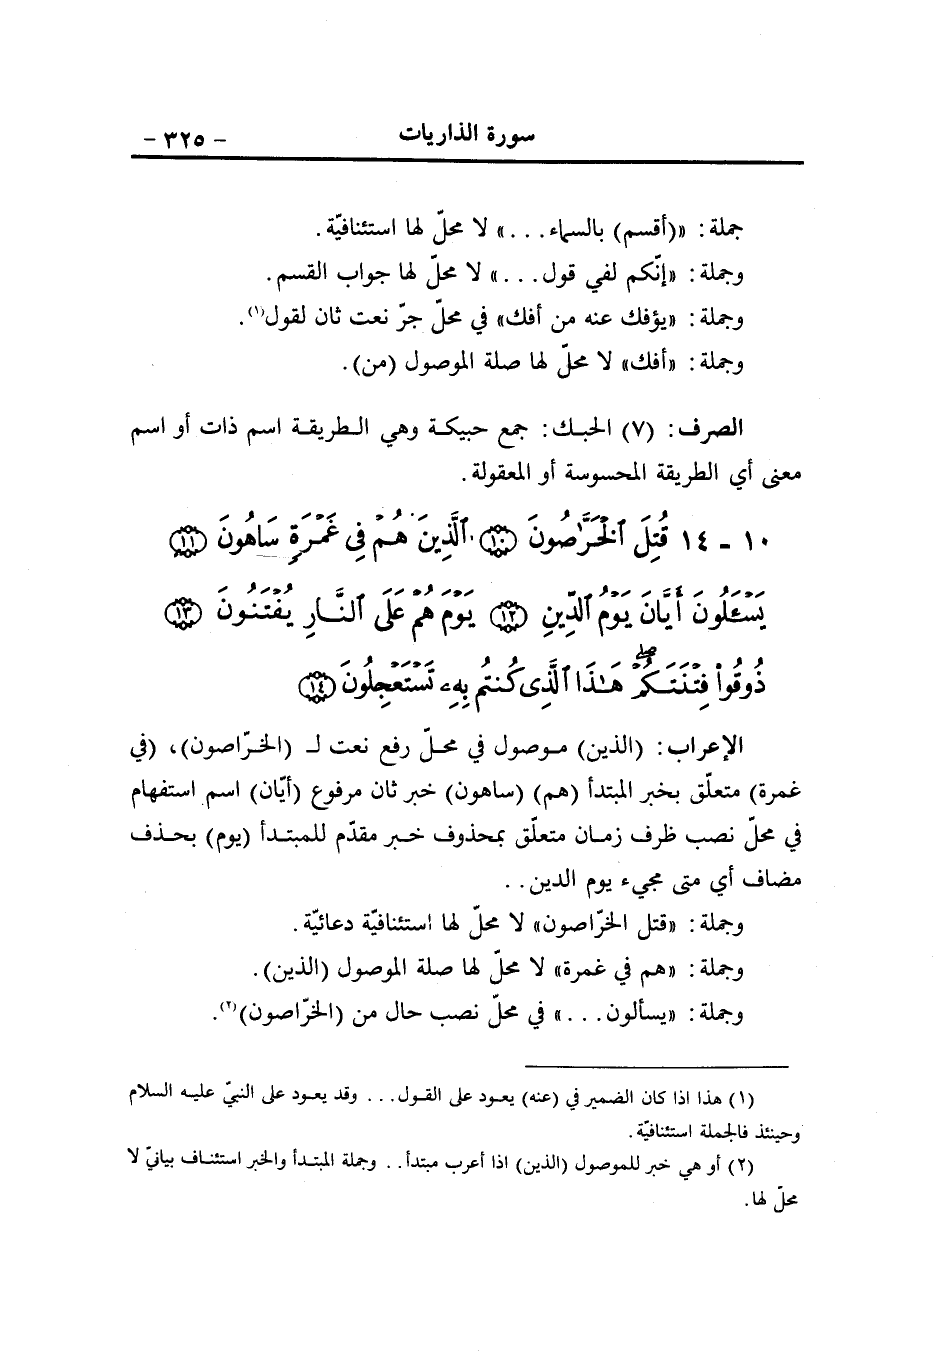 سورة الذاريات - ٣٢٥ -
جملة: «(أقسم) بالسماء...» لا محلّ لها استئنافيّة.
وجملة: «إنّكم لفي قول...» لا محلّ لها جواب القسم.
وجملة: «يؤفك عنه من أفك» في محلّ جرّ نعت ثان لقول(١).
وجملة: «أفك» لا محلّ لها صلة الموصول (من).
الصرف: (٧) الحبك: جمع حبيكة وهي الطريقة اسم ذات أو اسم
معنى أي الطريقة المحسوسة أو المعقولة.
١٠ - ١٤ قُتِلَ ٱلْخَرَّٰصُونَ ١٠ ٱلَّذِينَ هُمْ فِي غَمْرَةٍ سَاهُونَ ١١
يَسْـَٔلُونَ أَيَّانَ يَوْمُ ٱلدِّينِ ١٢ يَوْمَ هُمْ عَلَى ٱلنَّارِ يُفْتَنُونَ ١٣
ذُوقُوا۟ فِتْنَتَكُمْ ۖ هَـٰذَا ٱلَّذِى كُنتُم بِهِۦ تَسْتَعْجِلُونَ ١٤
الإعراب: (الذين) موصول في محلّ رفع نعت لـ (الخرّاصون)، (في
غمرة) متعلّق بخبر المبتدأ (هم) (ساهون) خبر ثان مرفوع (أيّان) اسم استفهام
في محلّ نصب ظرف زمان متعلّق بمحذوف خبر مقدّم للمبتدأ (يوم) بحذف
مضاف أي متى مجيء يوم الدين..
وجملة: «قتل الخرّاصون» لا محلّ لها استئنافيّة دعائيّة.
وجملة: «هم في غمرة» لا محلّ لها صلة الموصول (الذين).
وجملة: «يسألون...» في محلّ نصب حال من (الخرّاصون)(٢).
(١) هذا اذا كان الضمير في (عنه) يعود على القول... وقد يعود على النبيّ عليه السلام
وحينئذ فالجملة استئنافيّة.
(٢) أو هي خبر للموصول (الذين) اذا أعرب مبتدأ.. وجملة المبتدأ والخبر استئناف بيانيّ لا
محلّ لها.